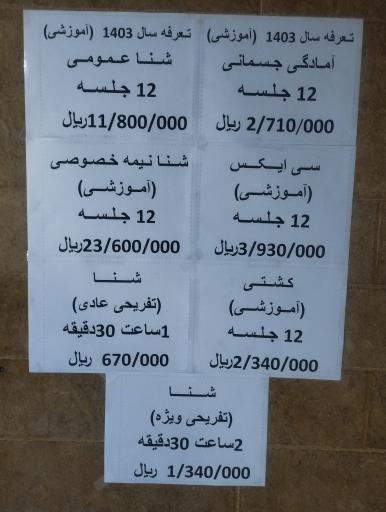 تعرفه سال 1403 (آموزشی)
آمادگی جسمانی
12 جلسه
2/710/000 ریال
تعرفه سال 1403 (آموزشی)
شنا عمومی
12 جلسه
11/800/000ریال
سی ایکس
(آموزشی)
12 جلسه
3/930/000ریال
شنا نیمه خصوصی
(آموزشی)
12 جلسه
23/600/000ریال
کشتی
(آموزشی)
12 جلسه
2/340/000ریال
شنا
(تفریحی عادی)
1ساعت 30دقیقه
670/000 ریال
شنا
(تفریحی ویژه)
2ساعت 30دقیقه
1/340/000 ریال